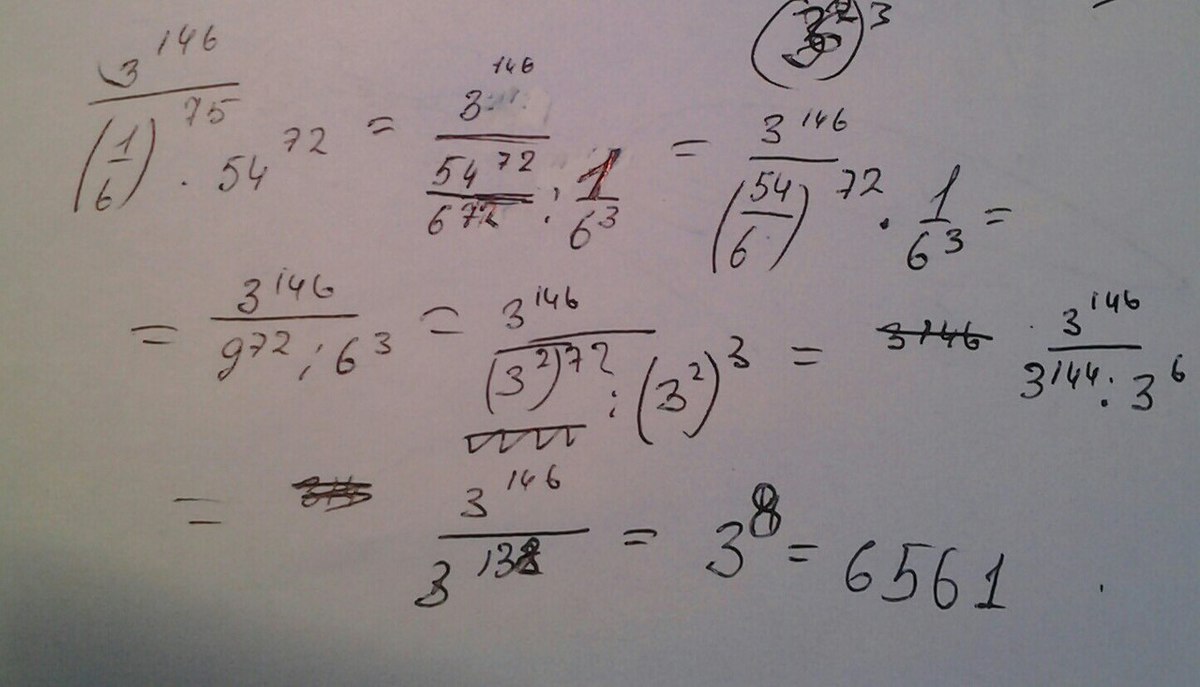 (3^2)^3
3^146 / ((1/6)^75 · 54^72) = 3^146 / (54^72/6^72 : 1/6^3) = 3^146 / ((54/6)^72 · 1/6^3) =
= 3^146 / (9^72 : 6^3) = 3^146 / ((3^2)^72 : (3^2)^3) = 3^146 / (3^144 : 3^6)
= 3^146 / 3^138 = 3^8 = 6561